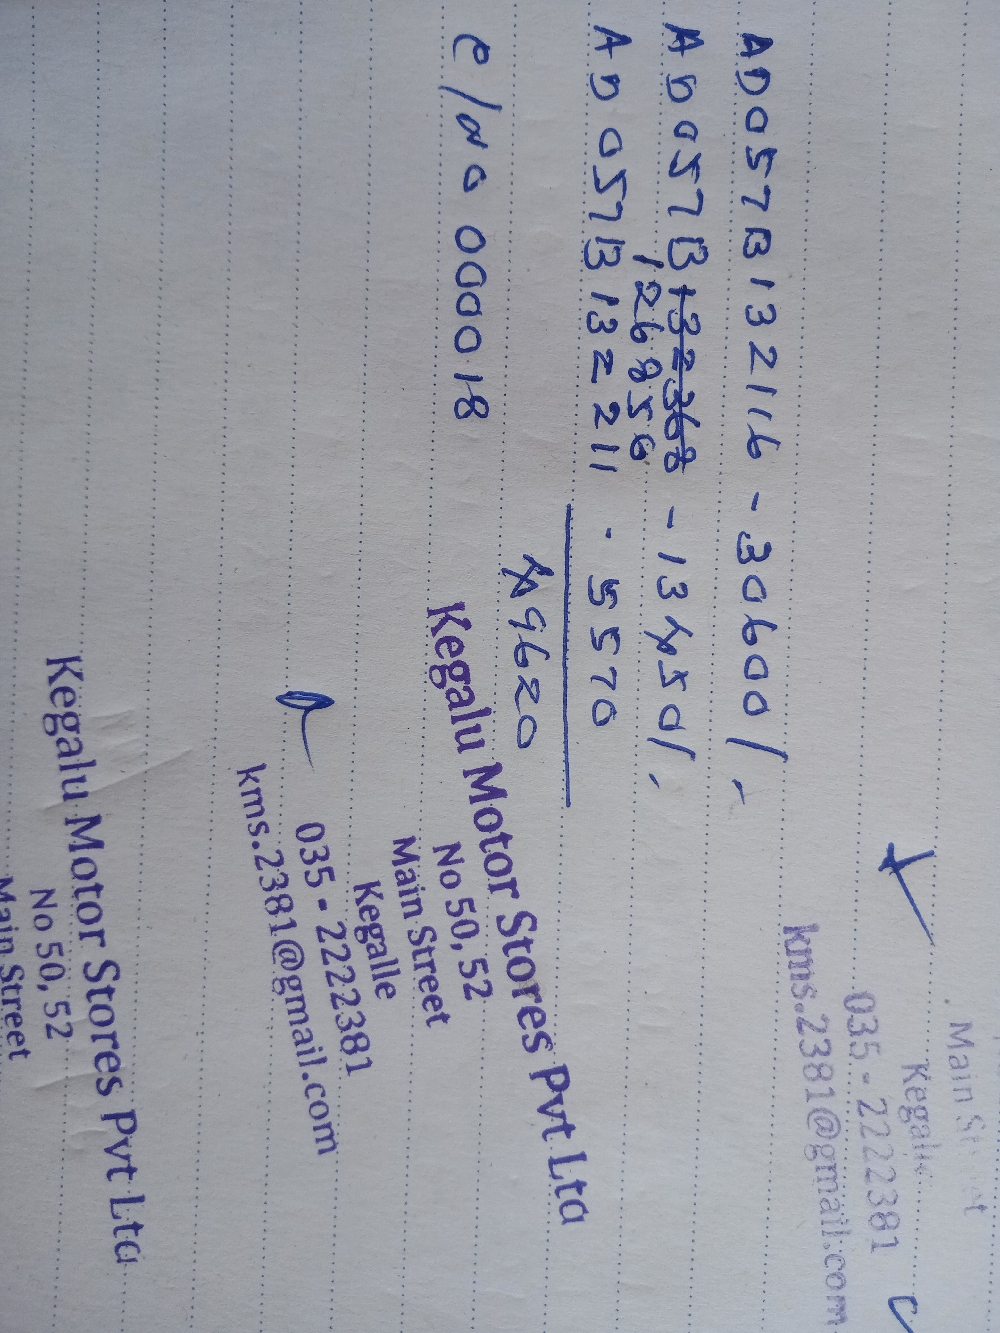 Main St
Kegalle
035 - 2222381
kms.2381@gmail.com
AD057B132116 - 30600/-
AD057B 132368 - 13450/-
126856
AD057B132211 - 5570
49620
c/no 000018
Kegalu Motor Stores Pvt Ltd
No 50, 52
Main Street
Kegalle
035 - 2222381
kms.2381@gmail.com
Kegalu Motor Stores Pvt Ltd
No 50, 52
Main Street